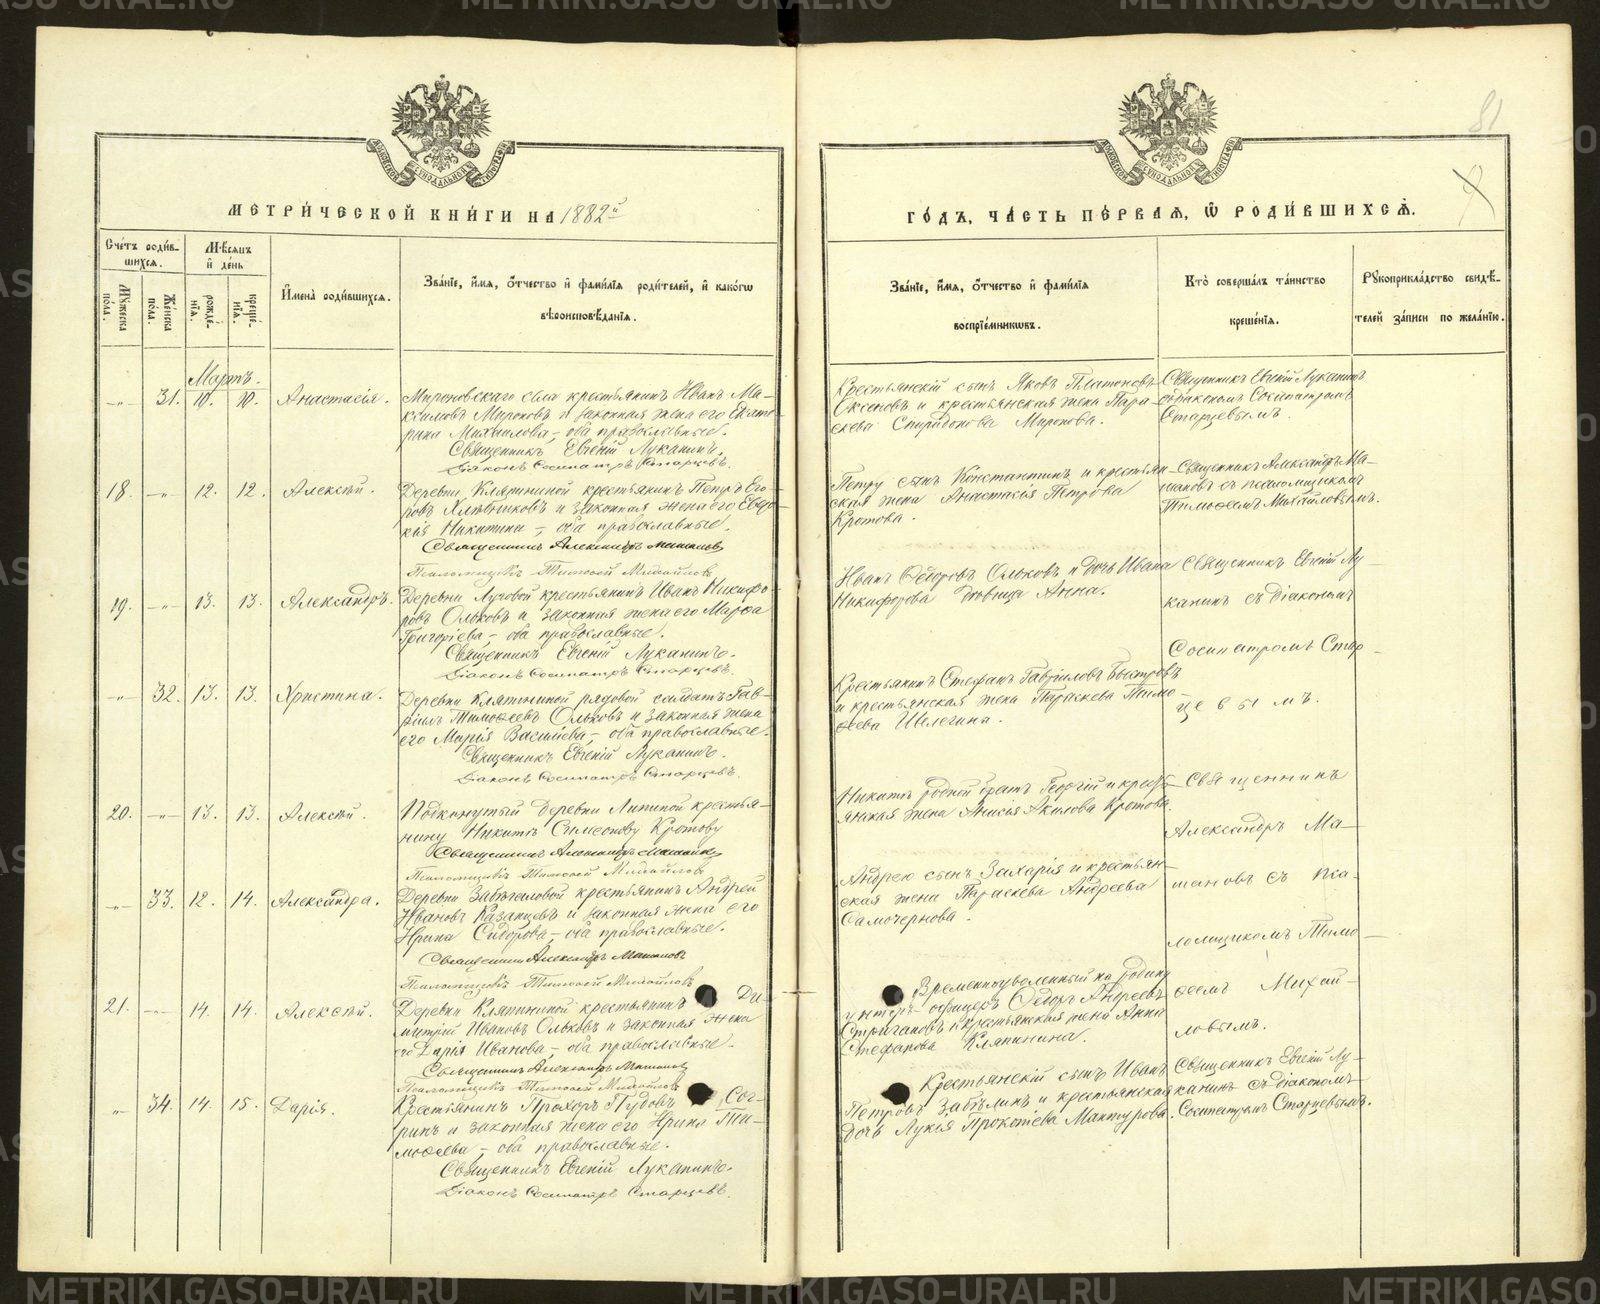 METRIKI.GASO-URAL.RU
81
МЕТРИ́ЧЕСКОЙ КНИ́ГИ НА 1882й
ГО́ДЪ, ЧА́СТЬ ПЕ́РВАЯ, Ѡ РОДИ́ВШИХСѦ.
Сче́тъ роди́в-
шихся.
Мѣсяцъ
и де́нь
Му́жеска пола.
Же́нска пола.
рожде́нїя.
креще́нїя.
И҆мена̀ роди́вшихся.
Зва́нїе, и҆́мя, о҆́тчество и҆ фами́лїя роди́телей, и҆ како́гѡ
вѣроисповѣ́данїя.
Зва́нїе, и҆́мя, о҆́тчество и҆ фами́лїя
воспрїе́мникѡвъ.
Кто̀ соверша́лъ та́инство
креще́нїя.
Рꙋкоприкла́дство свидѣ́-
телей за́писи по жела́нїю.
Мартъ.
-"- 31. 10. 10. Анастасія.
Мироновскаго села крестьянинъ Иванъ Ма-
ксимовъ Мироновъ и законная жена его Екате-
рина Михаилова, – оба православные.
Священникъ Евгеній Луканинъ.
Діаконъ Сосипатръ Старцевъ.
Крестьянскій сынъ Яковъ Платоновъ
Оксеновъ и крестьянская жена Пара-
скева Спиридонова Миронова.
Священникъ Евгеній Луканинъ
съ діакономъ Сосипатромъ
Старцевымъ.
18. -"- 12. 12. Алексѣй.
Деревни Кляпиной крестьянинъ Петръ Его-
ровъ и законная жена его Евдо-
кія Никитина, – оба православные.
Священникъ Александръ
Псаломщикъ Тимофей Михайловъ
Петру сынъ Константинъ и крестьян-
ская жена Анастасія Петрова
Кротова.
Священникъ Александръ Ма-
съ псаломщикомъ
Тимофеемъ Михайловымъ.
19. -"- 13. 13. Александръ.
Деревни Луговой крестьянинъ Иванъ Никифо-
ровъ Ольковъ и законная жена его Марѳа
Григоріева, – оба православные.
Священникъ Евгеній Луканинъ.
Діаконъ Сосипатръ Старцевъ.
Иванъ Ѳедоровъ Ольковъ и дочь Ивана
Никифорова дѣвица Анна.
Священникъ Евгеній Лу-
канинъ съ діакономъ
Сосипатромъ Стар-
цевымъ.
-"- 32. 13. 13. Христина.
Деревни Кляпиной рядовой солдатъ Гав-
ріилъ Тимофеевъ Ольковъ и законная жена
его Марія Васильева, – оба православные.
Священникъ Евгеній Луканинъ.
Діаконъ Сосипатръ Старцевъ.
Крестьянинъ Стефанъ Гавріиловъ Быстровъ
и крестьянская жена Параскева Тимо-
феева Шелегина.
20. -"- 13. 13. Алексѣй.
Подкинутый деревни Липиной крестья-
нину Никитѣ Симеонову Кротову
Священникъ Александръ
Псаломщикъ Тимофей Михайловъ
Никитѣ родной братъ Георгій и кресть-
янская жена Анисія Акилова Кротова.
Священникъ
Александръ Ма-
съ пса-
ломщикомъ Тимо-
феемъ Михай-
ловымъ.
-"- 33. 12. 14. Александра.
Деревни крестьянинъ Андрей
Ивановъ Казанцевъ и законная жена его
Ирина Сидорова, – оба православные.
Священникъ Александръ
Псаломщикъ Тимофей Михайловъ
Андрею сынъ Захарія и крестьян-
ская жена Параскева Андреева
Самочернова.
21. -"- 14. 14. Алексѣй.
Деревни Кляпиной крестьянинъ Ди-
митрій Ивановъ Ольковъ и законная жена
его Дарія Иванова, – оба православные.
Священникъ Александръ
Псаломщикъ Тимофей Михайловъ
Временноуволенный на родину
унтеръ-офицеръ Ѳедоръ Андреевъ
Стригановъ и крестьянская жена Анна
Стефанова Кляпинина.
-"- 34. 14. 15. Дарія.
Крестьянинъ Прохоръ Пудовъ Сог-
ринъ и законная жена его Ирина Ти-
мофеева, – оба православные.
Священникъ Евгеній Луканинъ.
Діаконъ Сосипатръ Старцевъ.
Крестьянскій сынъ Иванъ
Петровъ Забѣлинъ и крестьянская
дочь Лукія Прокопіева Мантурова.
Священникъ Евгеній Лу-
канинъ съ діакономъ
Сосипатромъ Старцевымъ.
METRIKI.GASO-URAL.RU